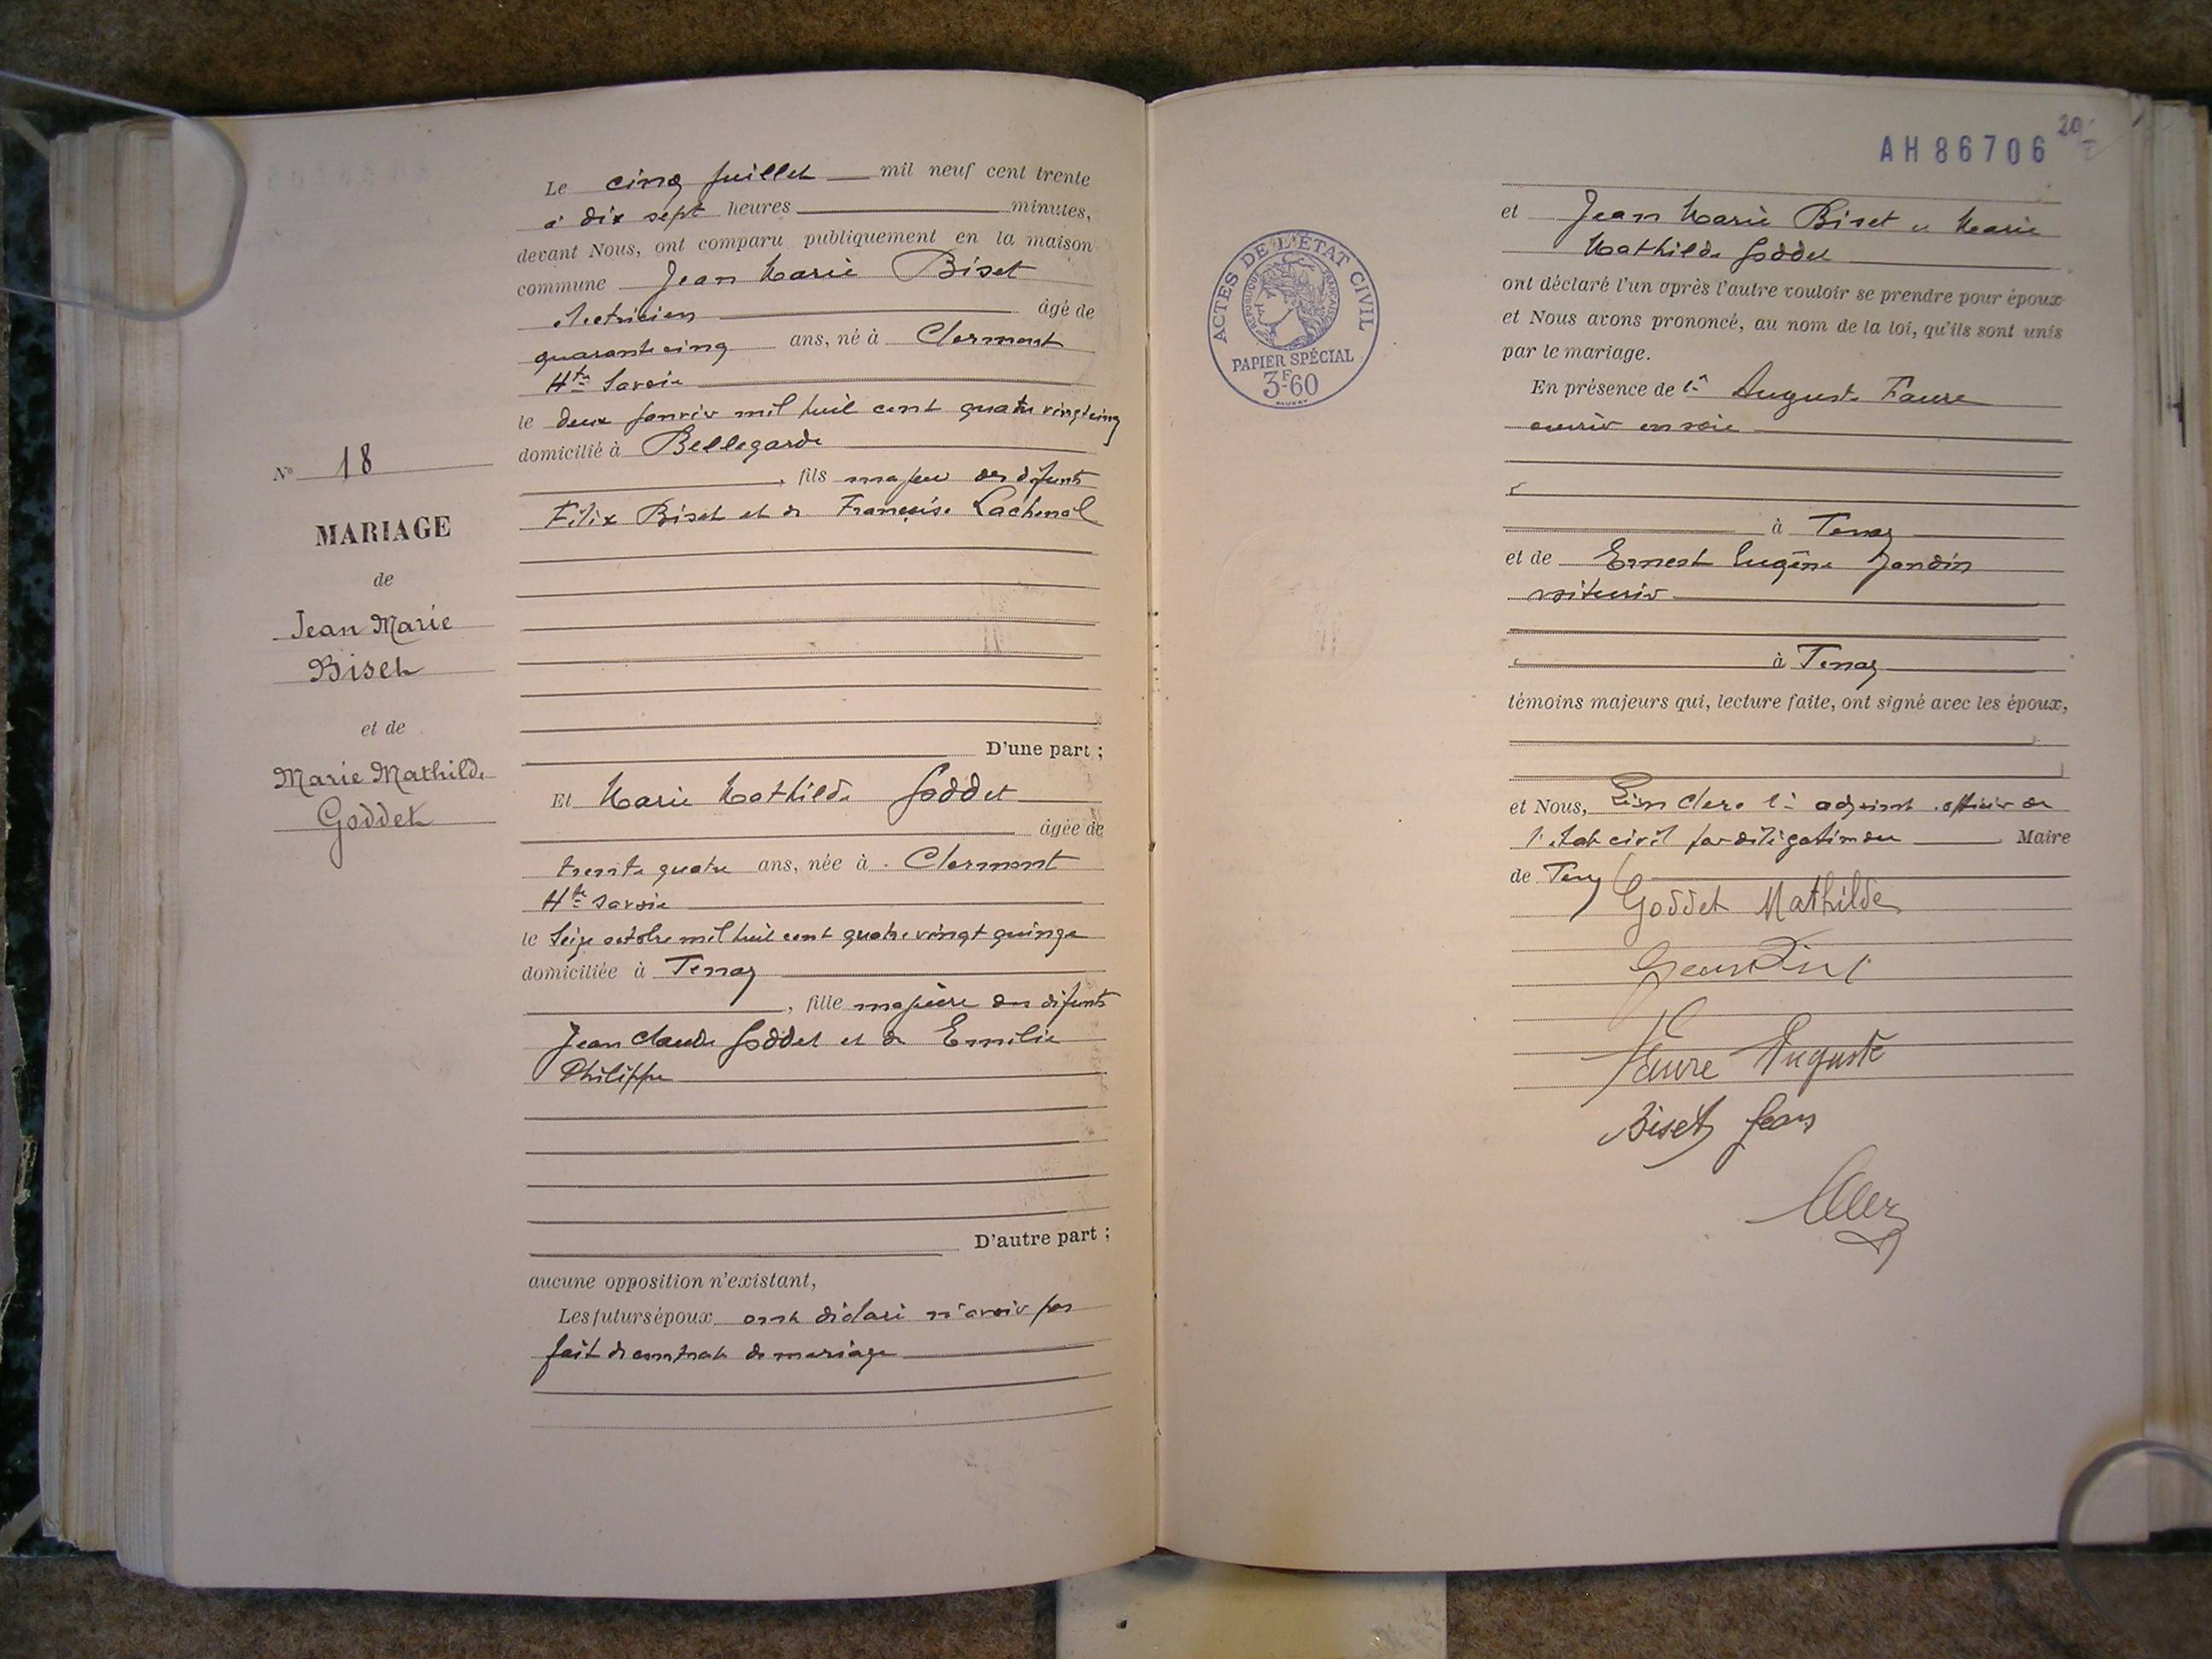 N° 18
MARIAGE
de
Jean Marie
Biset
et de
Marie Mathilde
Goddet
Le cinq juillet mil neuf cent trente
à dix sept heures minutes,
devant Nous, ont comparu publiquement en la maison
commune Jean Marie Biset
électricien âgé de
quarante cinq ans, né à Clermont
Hte Savoie
le deux janvier mil huit cent quatre vingt cinq
domicilié à Bellegarde
, fils majeur des défunts
Félix Biset et de Françoise Lachenal
D'une part ;
Et Marie Mathilde Goddet
âgée de
trente quatre ans, née à Clermont
Hte Savoie
le seize octobre mil huit cent quatre vingt quinze
domiciliée à Tenay
, fille majeure des défunts
Jean Claude Goddet et de Emilie
Philippe
D'autre part ;
aucune opposition n'existant,
Les futurs époux ont déclaré n'avoir pas
fait de contrat de mariage
AH 86706
20
ACTES DE L'ÉTAT CIVIL
RÉPUBLIQUE FRANÇAISE
PAPIER SPÉCIAL
3F60
et Jean Marie Biset et Marie
Mathilde Goddet
ont déclaré l'un après l'autre vouloir se prendre pour époux
et Nous avons prononcé, au nom de la loi, qu'ils sont unis
par le mariage.
En présence de Auguste Faure
ouvrier en soie
à Tenay
et de Ernest Eugène Jandin
voiturier
à Tenay
témoins majeurs qui, lecture faite, ont signé avec les époux,
et Nous, Clerc 1er adjoint officier de
l'état civil par délégation du Maire
de Tenay
Goddet Mathilde
Faure Auguste
Biset Jean